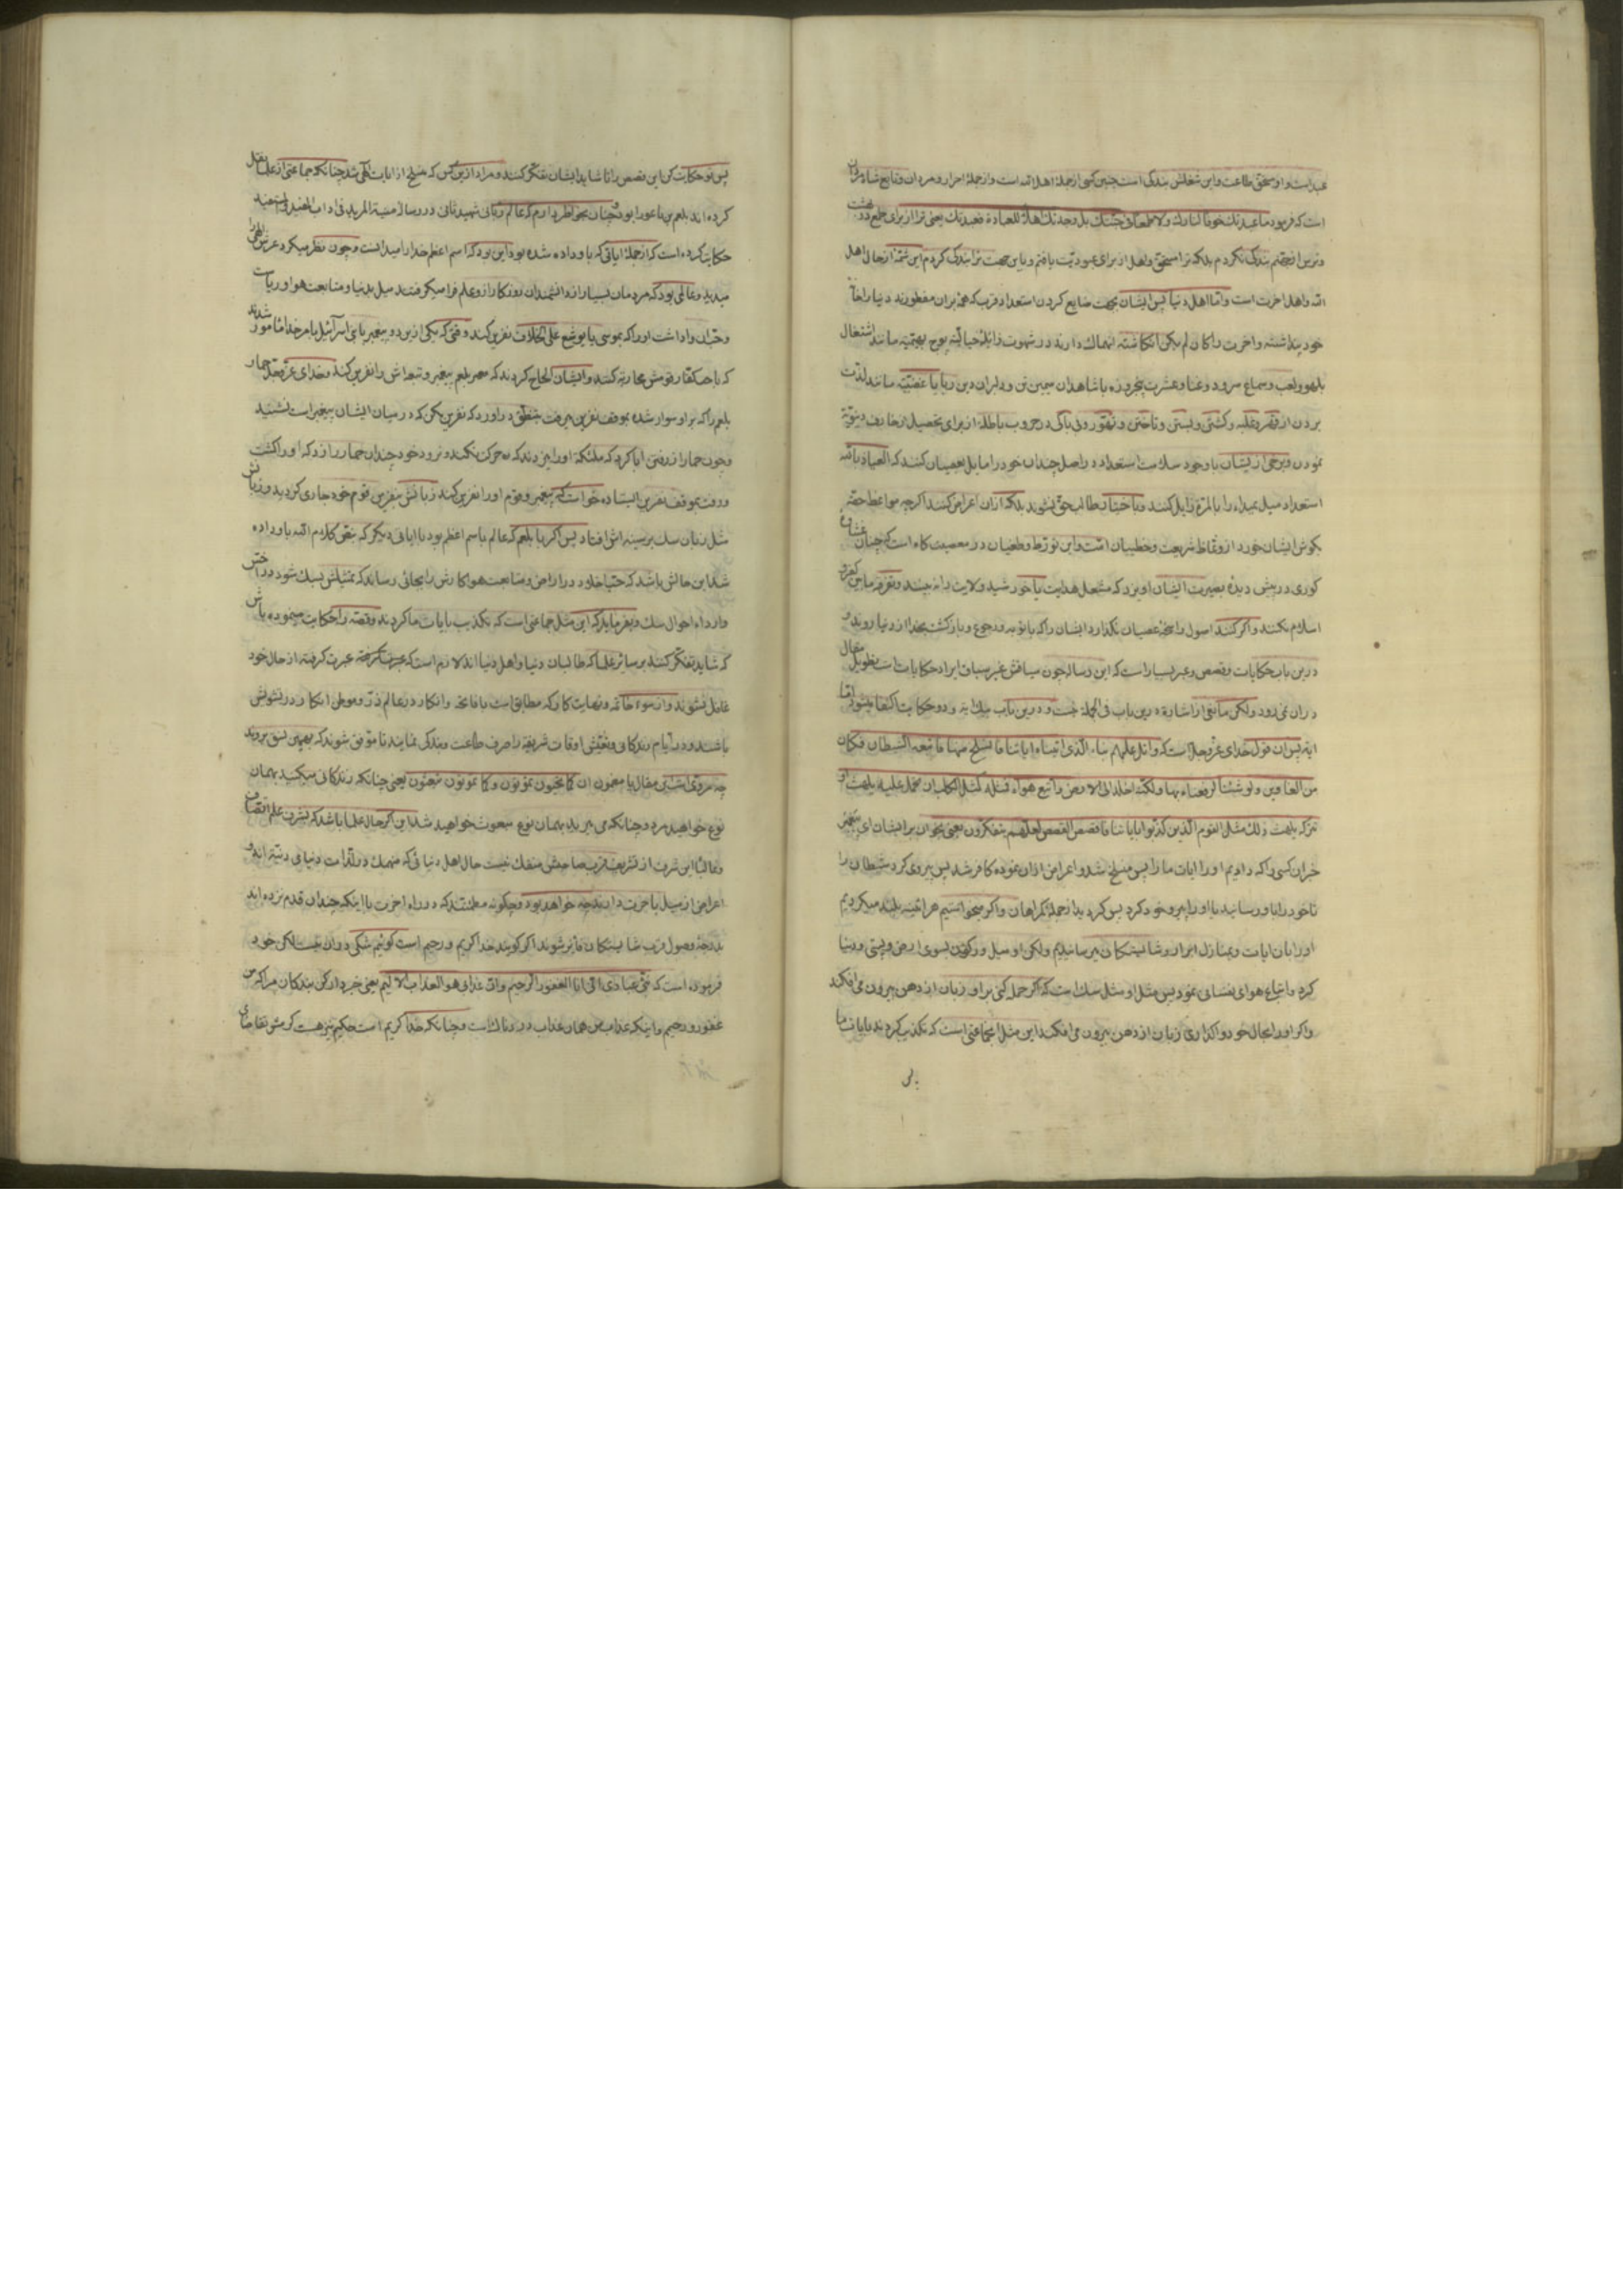 عبد است و او مستحق طاعت و این شغلش بندگی است چنین کسی از جملهٔ اهل الله است و از جملهٔ احرار و مردان و تابع شاه مردان
است که فرمود ما عبدتك خوفا لنارك ولا طمعا فی جنتك بل وجدتك اهلا للعبادة فعبدتك یعنی ترا از برای طمع در بهشت
و ترس از جهنم بندگی نکردم بلکه ترا مستحق و اهل از برای عبودیت یافتم و باین جهت ترا بندگی کردم این شمهٔ از حال اهل
الله و اهل اخرت است و اما اهل دنیا پس ایشان بجهت ضایع کردن استعداد قرب که هم بران مفطورند دنیا را خانهٔ
خود پنداشته و اخرت را کان لم یکن انکاشته انهماك دارند در شهوت زایلهٔ حیالیه پوچ بهیمیه مانند اشتغال
بلهو ولعب و سماع سرود و غنا و عشرت پنجروزه با شاهدان سیمین تن و دلبران دین ربا یا غضبیه مانند لذت
بردن از قهر و غلبه و کشتن و بستن و تاختن و تهور و بی باکی در حروب باطله از برای تحصیل زخارف دنیویه
نمودن و برخی از یشان با وجود سلامت استعداد در اصل چندان خود را مایل بعصیان کنند که العیاذ بالله
استعداد میل بمبداء را بالمرة زایل کنند و باختیار طالب حق نشوند بلکه ازان اعراض کنند اگرچه مواعظ حقه
بکوش ایشان خورد از وعاظ شریعت و خطیبان امت و این تورط و طغیان در معصیت کاه است که چنان غشاوه
کوری در پیش دیدهٔ بصیرت ایشان اویزد که مشعل هدایت یا خورشید ولایت را نه بینند و تفرقه مابین کفر و
اسلام نکنند و اگر کنند اصول راسخهٔ عصیان نکذارد ایشان را که با توبه و رجوع و بازکشت بخدا از دنیا روند و
درین باب حکایات و قصص و عبر بسیار است که این رساله چون سیاقش غیر سیاق ایراد حکایات است تطویل مقال
دران نمی رود ولکن مانعی از اشاره درین باب فی الجمله نیست و درین باب بیك ایه و دو حکایت اکتفا میشود اما
ایه پس ان قول خدای عز وجل است که واتل علیهم نباء الذی اتیناه ایاتنا فانسلخ منها فاتبعه الشیطان فکان
من الغاوین ولو شئنا لرفعناه بها ولکنه اخلد الی الارض واتبع هواه فمثله کمثل الکلب ان تحمل علیه یلهث او
تترکه یلهث ذلك مثل القوم الذین کذبوا بایاتنا فاقصص القصص لعلهم یتفکرون یعنی بخوان بر ایشان ای پیغمبر
خبر ان کسی را که دادیم او را ایات ما را پس منسلخ شد و اعراض ازان نموده کافر شد پس پیروی کرد شیطان را
تا خود را باو رسانید یا او را پیرو خود کرد پس کردید از جملهٔ کمراهان و اگر میخواستیم هراینه بلند میکردیم
او را بان ایات و بمنازل ابرار و شایستکان میرسانیدیم ولکن او میل و رکون بسوی ارض و پستی و دنیا
کرد و اتباع هوای نفسانی نمود پس مثل او مثل سك است که اگر حمله کنی بر او زبان از دهن بیرون می افکند
و اگر او را بحال خود واکذاری زبان از دهن بیرون می افکند این مثل جماعتی است که تکذیب کردند بایات ما
پس
پس تو حکایت کن این قصص را تا شاید ایشان تفکر کنند و مراد ازین کس که منسلخ از ایات الهی شد چنانکه جماعتی از علما نقل
کرده اند بلعم بن باعورا بود و چنان بخواطر دارم که عالم ربانی شهید ثانی در رسالهٔ منیة المرید فی اداب المفید والمستفید
حکایت کرده است که از جملهٔ ایاتی که باو داده شده بود این بود که اسم اعظم خدا را میدانست و چون نظر میکرد عرش الهی را
میدید و عالمی بود که مردمان بسیار از دانشمندان روزکار از و علم فرا میکرفتند میل بدنیا و متابعت هوا و ریاست
و حب ان واداشت او را که بموسی یا یوشع علی الخلاف نفرین کند وقتی که یکی ازین دو پیغمبر با بنی اسرآئیل بامر خدا مامور شدند
که با جمع کفار قومش محاربه کنند و ایشان الحاح کردند که بلعم پیغمبر و تبعه اش را نفرین کند و خدای عز وجل حمار
بلعم را که بر او سوار شده بموقف نفرین میرفت بنطق دراورد که نفرین مکن که در میان ایشان پیغمبر است نشنید
و چون حمار از رفتن ابا کرد که ملئکه او را میزدند که حرکت نکند و نرود خود چندان حمار را زد که او را کشت
و رفت بموقف نفرین ایستاده خواست که پیغمبر و قوم او را نفرین کند زبانش بنفرین قوم خود جاری کردید و زبانش
مثل زبان سك بر سینه اش افتاد پس اگر با بلعم که عالم باسم اعظم بود با ایاتی دیگر که بنص کلام الله باو داده
شد این حالش باشد که حب اخلاد در ارض و متابعت هوا کارش را بجائی رساند که تمثیلش بسك شود در اخس
و اردا احوال سك و بفرماید که این مثل جماعتی است که تکذیب بایات ما کردند و قصه را حکایت مینموده باش
که شاید تفکر کنند بر سایر علما که طالبان دنیا و اهل دنیا اند لازم است که عبرت کرفته از حال خود
غافل نشوند و از سوء خاتمه و نهایت کار که مطابق است با فاتحه و انکار در عالم ذر و موطن انکار در تشویش
باشند و در ایام زندکانی و تعیش اوقات شریفه را صرف طاعت و بندکی نمایند تا موفق شوند که بهمین نسق بروند
چه مروی است این مقال با مضمون ان کما تحیون تموتون و کما تموتون تبعثون یعنی چنانکه زندکانی میکنید بهمان
نوع خواهید مرد و چنانکه می میرید بهمان نوع مبعوث خواهید شد این اگر حال علما باشد که بشرف علم اتصاف
و غالبا این شرف از تشریف قرب صاحبش منفك نیست حال اهل دنیائی که منهمك در لذات دنیای دنیه اند و
اعراض از میل باخرت دارند چه خواهد بود و چکونه مطمئنند که در راه اخرت با اینکه چندان قدم نزده اند
بدرجهٔ وصول قرب شایستکان فایز شوند اگر کویند خدا کریم و رحیم است کوئیم شکی دران نیست لکن خود
فرموده است که نبئ عبادی انی انا الغفور الرحیم وان عذابی هو العذاب الالیم یعنی خبردار کن بندکان مرا که من
غفور و رحیم و اینکه عذاب من همان عذاب دردناك است و چنانکه خدا کریم است حکیم نیز هست کرمش تقاضای